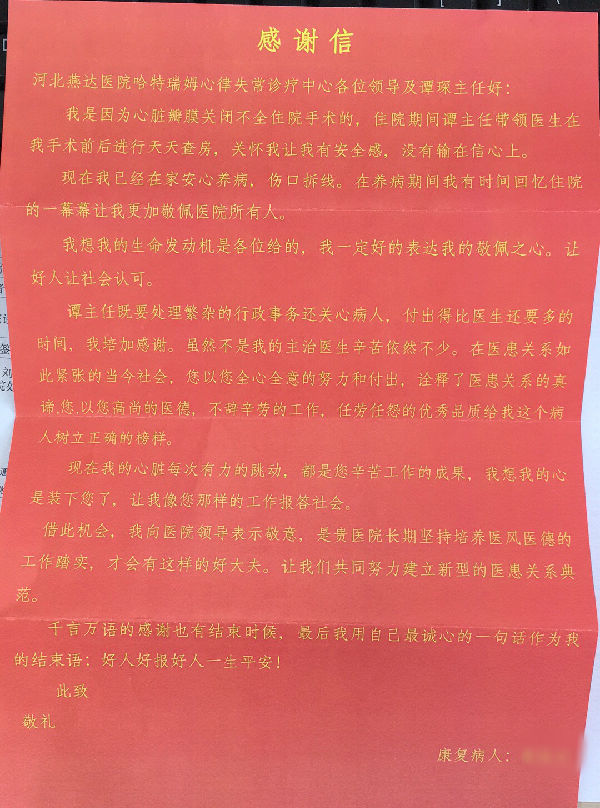 感谢信
河北燕达医院哈特瑞姆心律失常诊疗中心各位领导及谭琛主任好：
我是因为心脏瓣膜关闭不全住院手术的，住院期间谭主任带领医生在
我手术前后进行天天查房，关怀我让我有安全感，没有输在信心上。
现在我已经在家安心养病，伤口拆线。在养病期间我有时间回忆住院
的一幕幕让我更加敬佩医院所有人。
我想我的生命发动机是各位给的，我一定好的表达我的敬佩之心。让
好人让社会认可。
谭主任既要处理繁杂的行政事务还关心病人，付出得比医生还要多的
时间，我培加感谢。虽然不是我的主治医生辛苦依然不少。在医患关系如
此紧张的当今社会，您以您全心全意的努力和付出，诠释了医患关系的真
谛.您.以您高尚的医德，不辞辛劳的工作，任劳任怨的优秀品质给我这个病
人树立正确的榜样。
现在我的心脏每次有力的跳动，都是您辛苦工作的成果，我想我的心
是装下您了，让我像您那样的工作报答社会。
借此机会，我向医院领导表示敬意，是贵医院长期坚持培养医风医德的
工作踏实，才会有这样的好大夫。让我们共同努力建立新型的医患关系典
范。
千言万语的感谢也有结束时候，最后我用自己最诚心的一句话作为我
的结束语：好人好报好人一生平安！
此致
敬礼
康复病人：